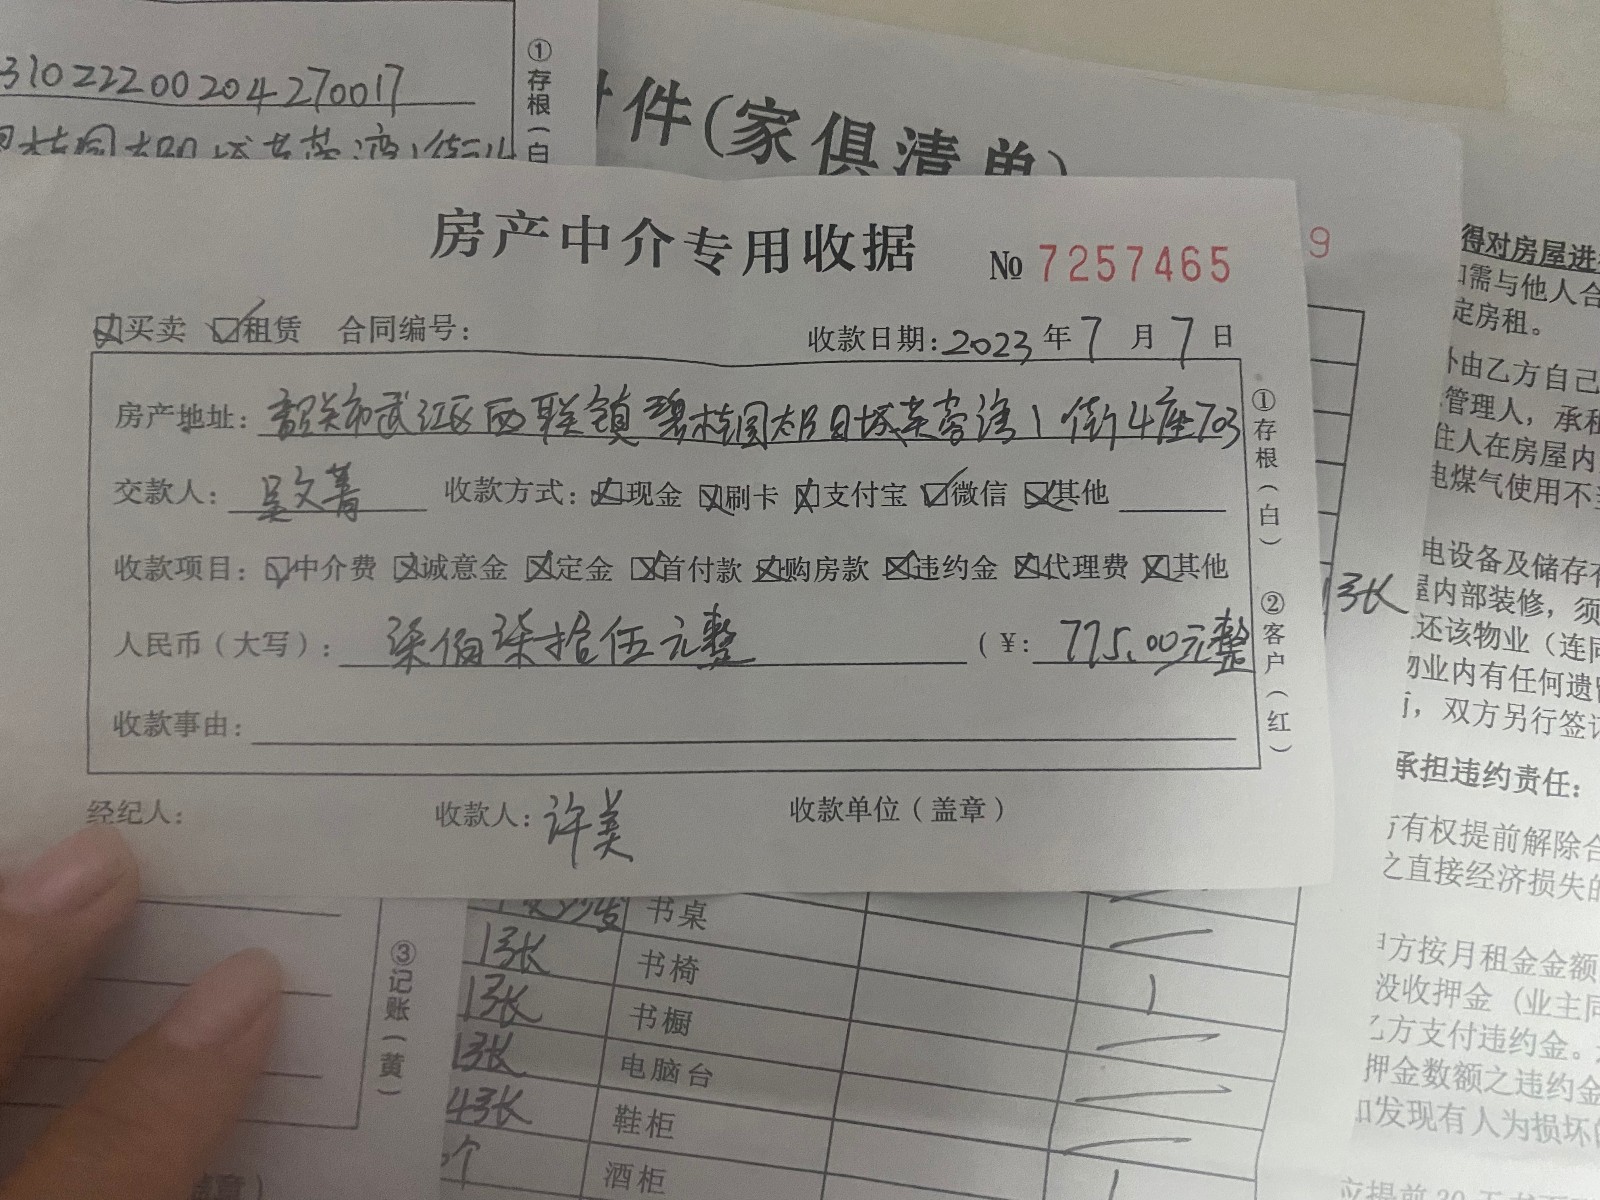 310222200204270017
①存根(白
件(家俱清单)
房产中介专用收据 № 7257465
9
买卖 租赁 合同编号: 收款日期:2023年7月7日
房产地址: 韶关市武江区西联镇碧桂园太阳城芙蓉湾1街4座703
交款人: 吴文菁 收款方式: 现金 刷卡 支付宝 微信 其他
收款项目: 中介费 诚意金 定金 首付款 购房款 违约金 代理费 其他
人民币(大写): 柒佰柒拾伍元整 (¥: 775.00元整
收款事由:
经纪人: 收款人: 许美 收款单位(盖章)
①存根(白) ②客户(红)
1张
书桌
1张 书椅 1
1张 书橱
1张 电脑台
4张 鞋柜
个 酒柜 1
③记账(黄)
盖章)
得对房屋进
需与他人合
定房租。
由乙方自己
管理人，承租
住人在房屋内
电煤气使用不
电设备及储存
屋内部装修，须
还该物业（连同
物业内有任何遗
，双方另行签
承担违约责任:
有权提前解除合
之直接经济损失的
方按月租金金额
没收押金（业主同
乙方支付违约金。
押金数额之违约金
发现有人为损坏的
提前30天